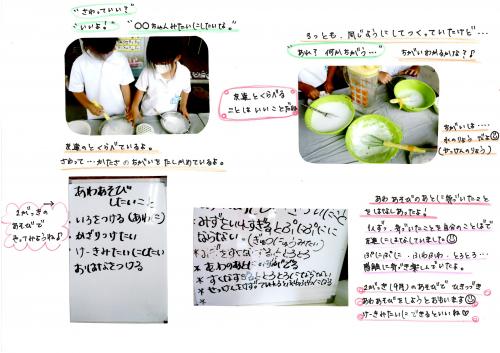 "さわっていい？"
いいよ！
"〇〇ちゃんみたいにしたいな。"
3つとも、同じようにしてつくっていたけど…
"あれ？何かちがう…"
ちがいわかるかな？♪
友達とくらべる
ことはいいことだね
ちがいは…
水のりょうだよ
(せっけんのりょう)
友達のとくらべているよ。
さわって…かたさのちがいをたしかめているよ。
2がっきの
あそびで
やってみようね♪
あわあそび
したいこと
・いろをつける(あわに)
・かざりつけたい
・けーきみたいにしたい
・おはなをつける
みずをいれすぎるとぷくぷくに
ならない。(ぎゅうにゅうみたい)
あわあそびのあとに気づいたこと
をはなしあったよ！
1人ずつ、気づいたことを自分のことばで
友達にはなしていました
ぷにぷに・ふわふわ・とろとろ…
感触に気づき楽しんでいたよ。
2がっき(9月)のあそびで ひきつづき
あわあそびをしようとおもいます
けーきみたいにできるといいね♡